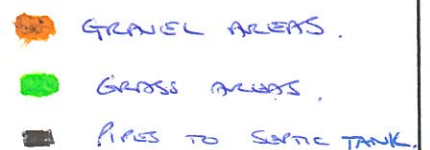 GRAVEL AREAS.
GRASS AREAS.
PIPES TO SEPTIC TANK.